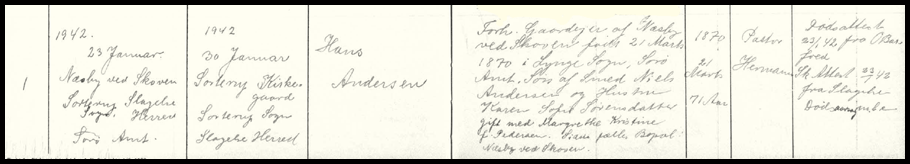 1
1942.
23 Januar.
Næsby ved Skoven
Sorterup Slagelse
Sogn. Herred
Sorø Amt.
1942
30 Januar
Sorterup Kirke-
gaard
Sorterup Sogn
Slagelse Herred
Hans
Andersen
Forh. Gaardejer af Næsby
ved Skoven født 21 Marts
1870 i Lynge Sogn, Sorø
Amt. Søn af Smed Niels
Andersen og Hustru
Karen Sofie Sørensdatter
gift med Margrethe Kristine
f. Pedersen. Sidste fælles Bopæl:
Næsby ved Skoven.
1870
21
Marts
71 Aar
Pastor
Hermann
Dødsattest
23/1 42 fra
fred
Sk. Attest 23/1 42
fra Slagelse